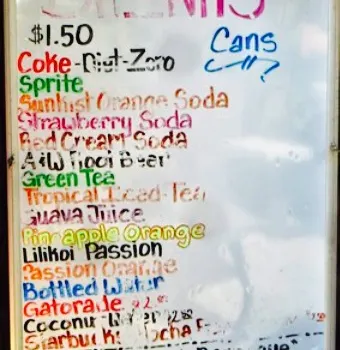 DRINKS
$1.50 Cans
Coke-Diet-Zero
Sprite
Sunkist Orange Soda
Strawberry Soda
Red Cream Soda
A&W Root Beer
Green Tea
Tropical Iced-Tea
Guava Juice
Pineapple Orange
Lilikoi Passion
Passion Orange
Bottled Water
Gatorade
Coconut Water
Starbucks Mocha